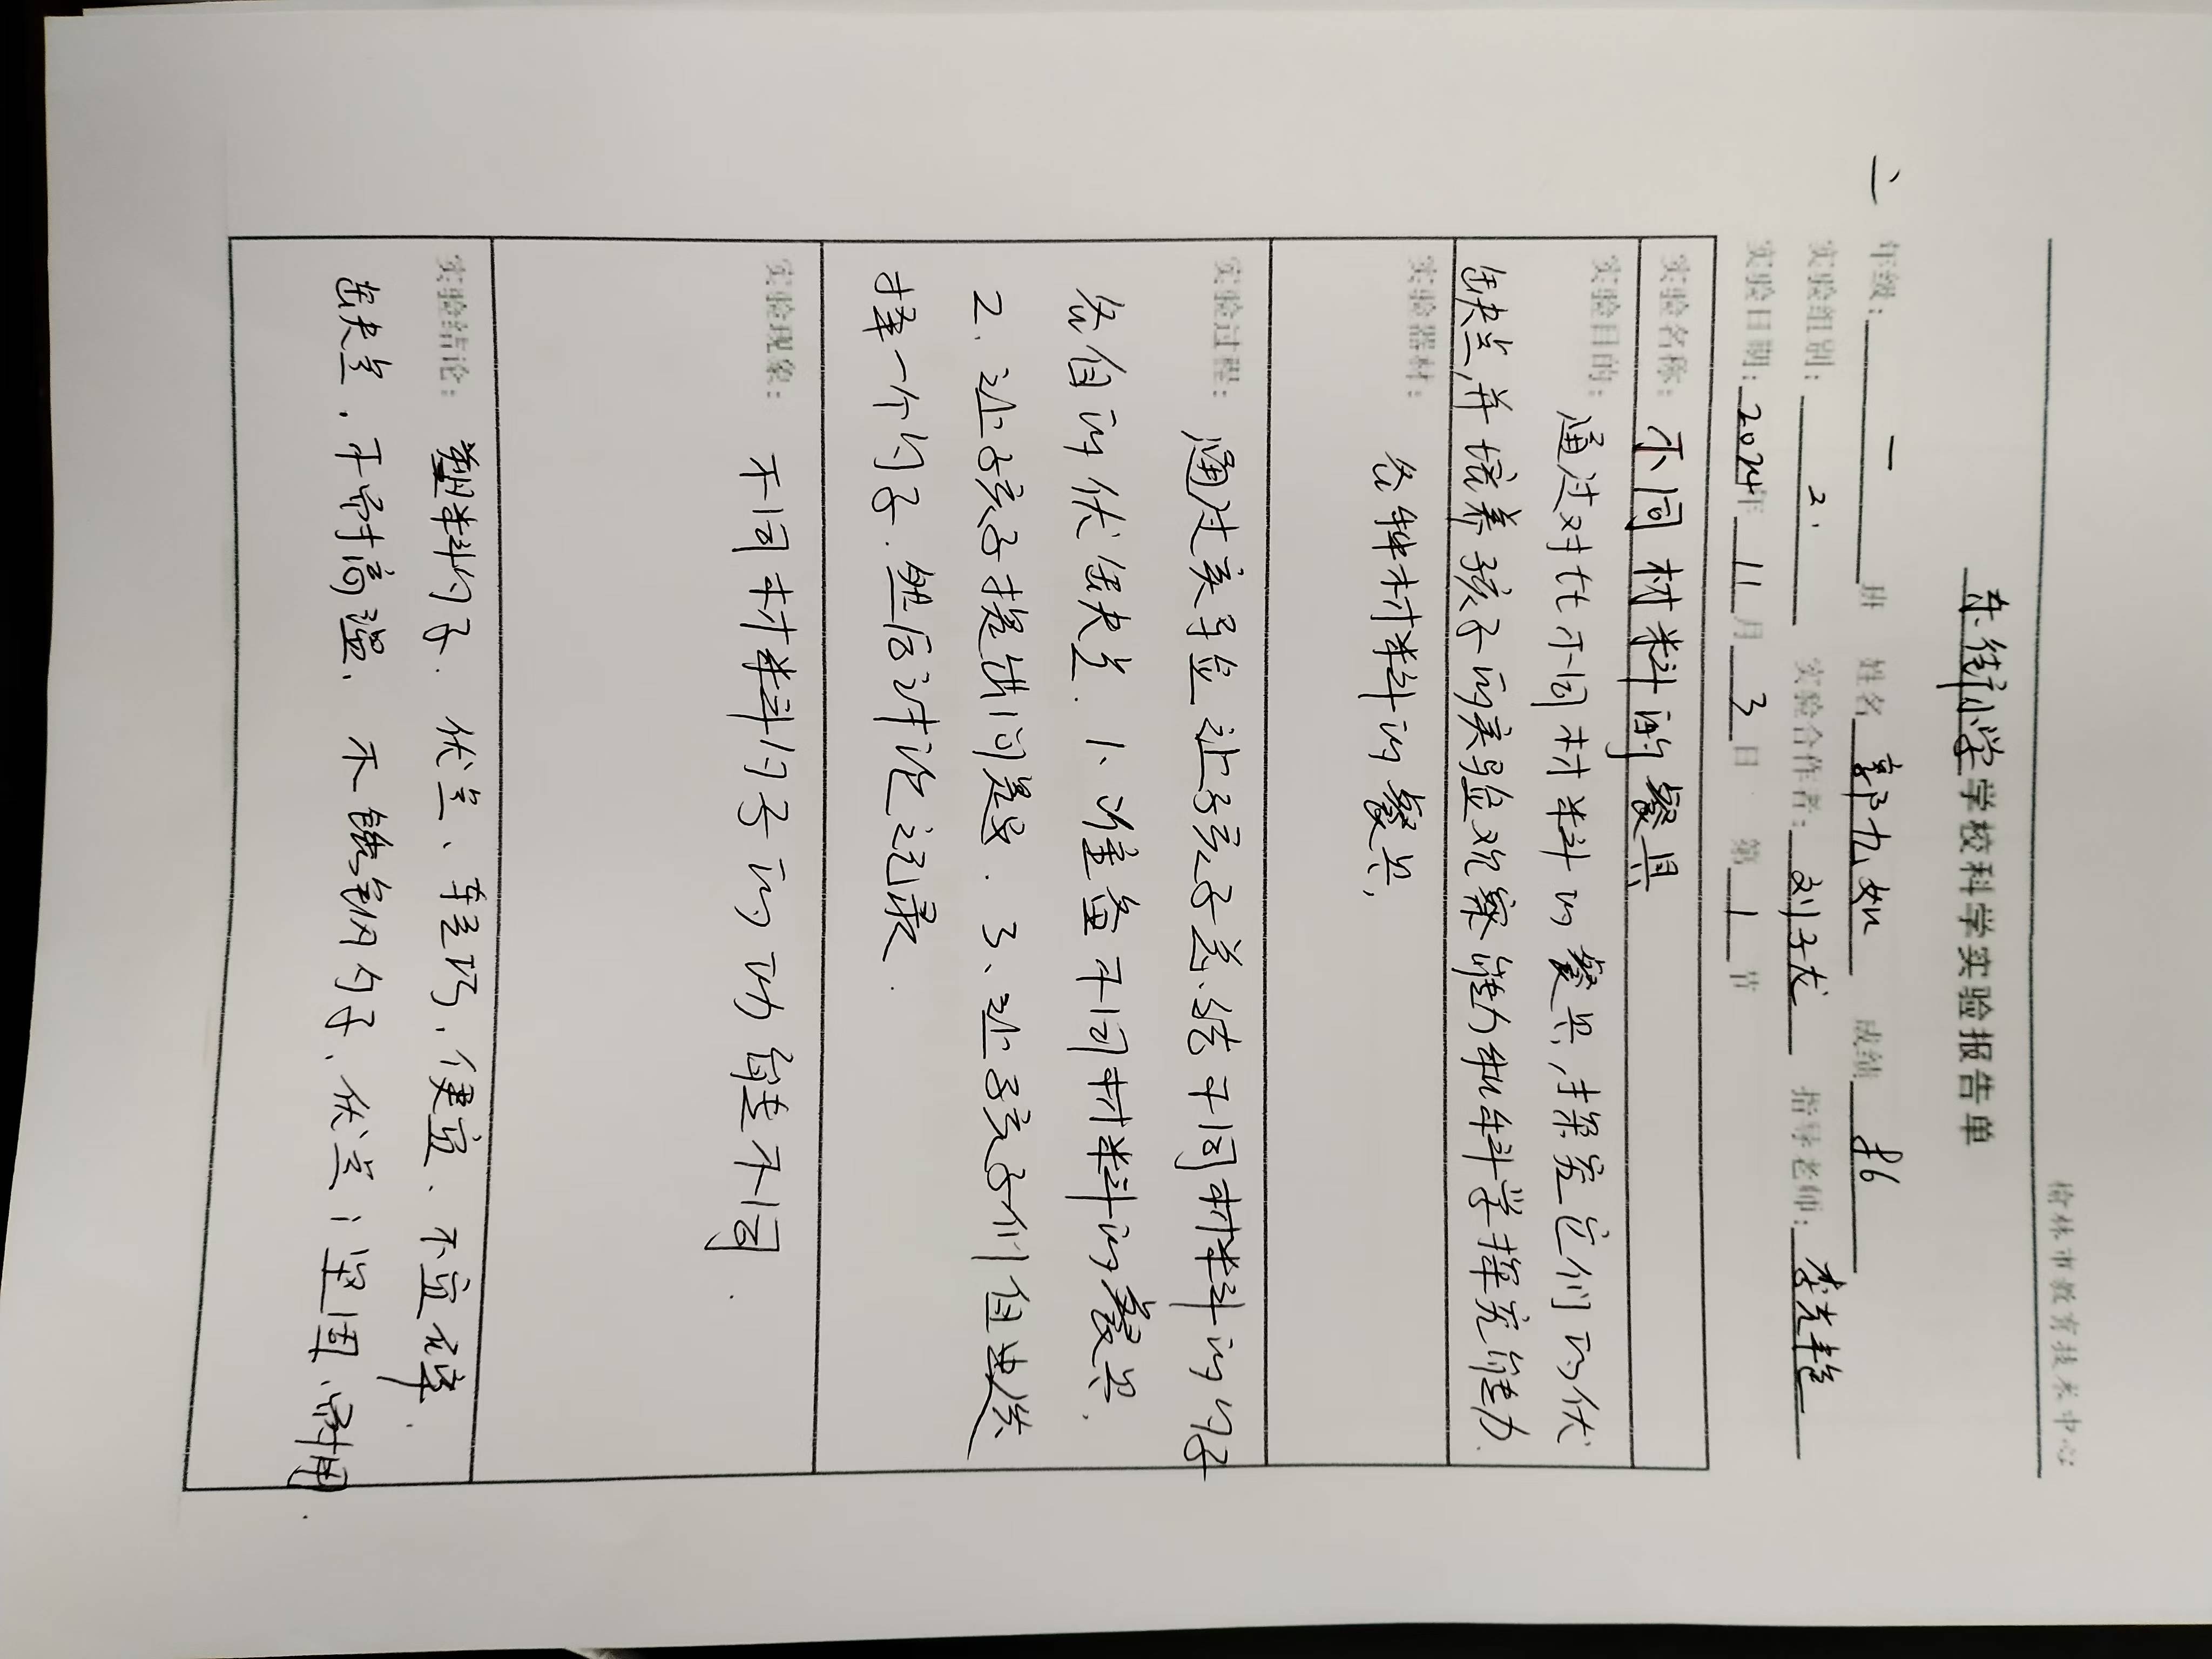 榆林市教育技术中心
东街小学学校科学实验报告单
二年级：一班 姓名 郭九如 成绩 96
实验组别：2. 实验合作者：刘子龙 指导老师：李
实验日期：2024年11月3日 第1节
实验名称：不同材料的餐具
实验目的：通过对比不同材料的餐具，探索它们的伏
缺点，并培养孩子的实验观察能力和科学探究能力.
实验器材：
各种材料的餐具.
实验过程：通过实验让孩子总结不同材料的勺子
各自的伏缺点. 1、准备不同材料的餐具.
2. 让孩子提出问题. 3、让孩子们自由选
择一个勺子. 然后讨论记录.
实验现象：
不同材料勺子的功能不同.
实验结论：塑料勺子. 伏点、轻巧. 便宜. 不宜碎.
缺点. 不耐高温. 不锈钢勺子. 伏点：坚固.耐用.